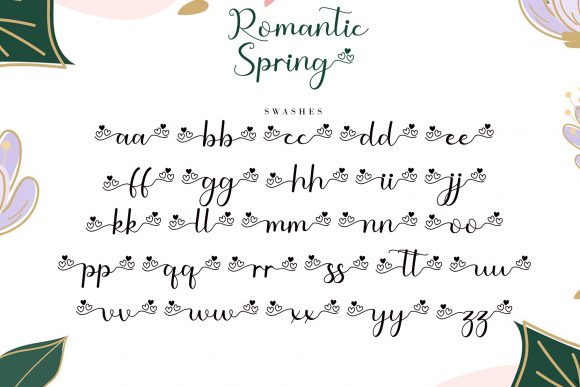 Romantic
Spring
SWASHES
aa bb cc dd ee
ff gg hh ii jj
kk ll mm nn oo
pp qq rr ss tt uu
vv ww xx yy zz